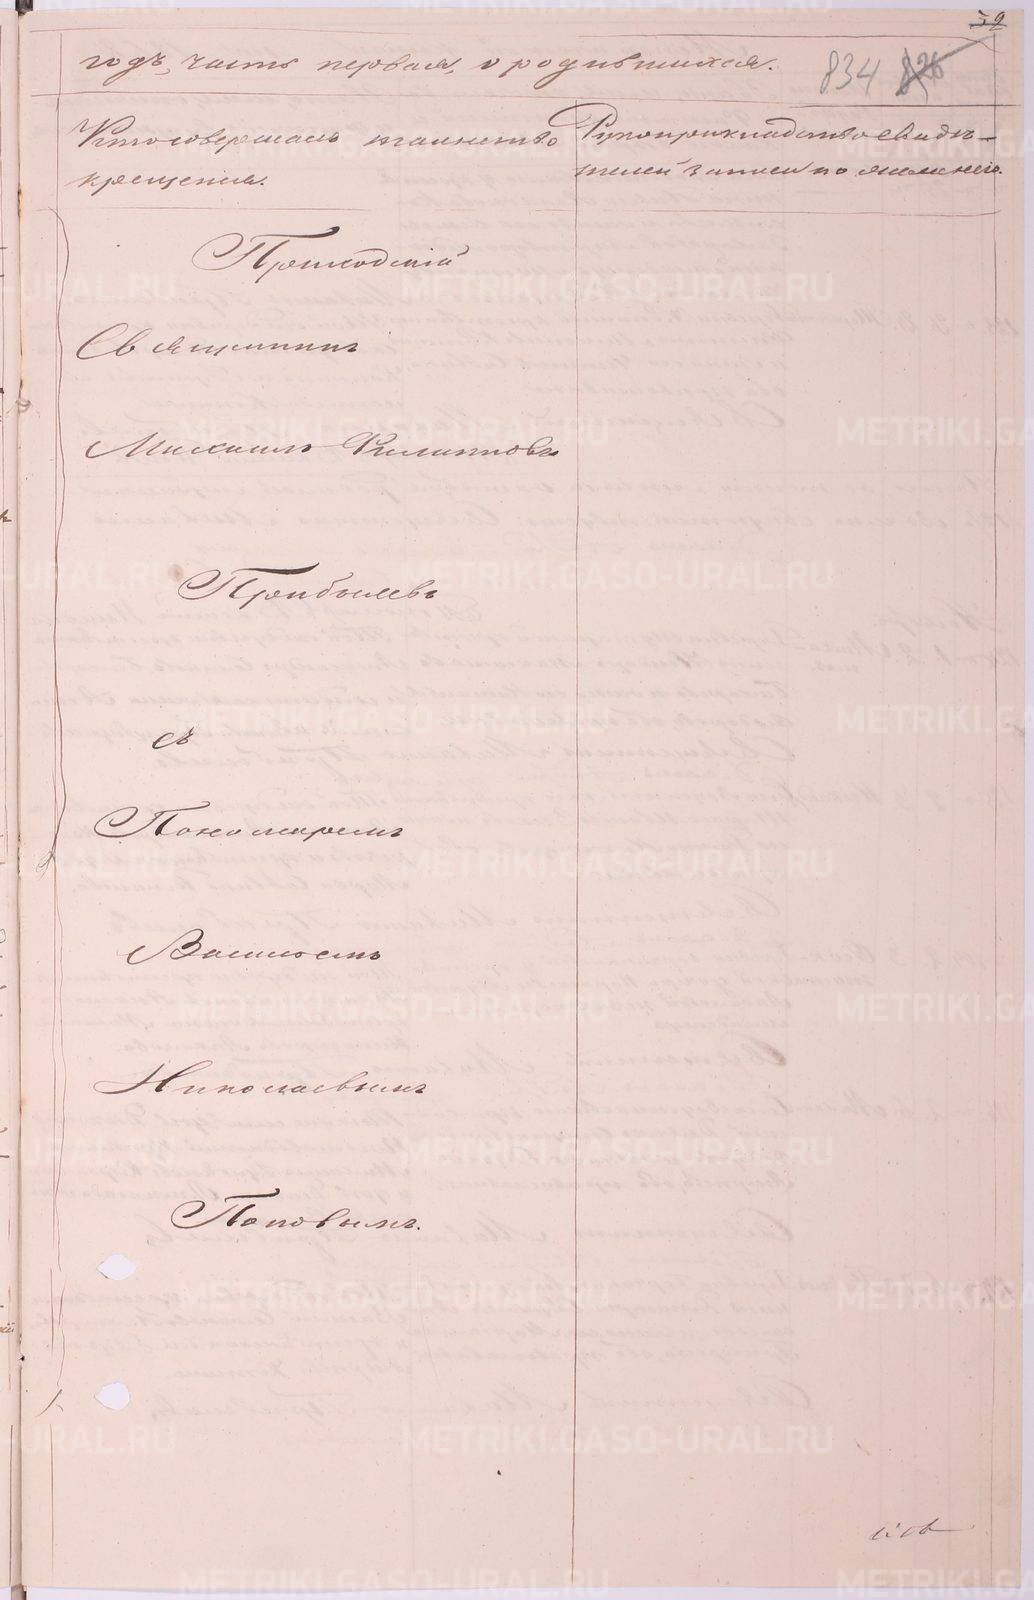 годъ, часть первая, о родившихся.
834
Кто совершалъ таинство
крещенія.
Рукоприкладство свидѣ-
телей записи по желанію.
Приходскій
Священникъ
Михаилъ Филипповъ
Прибылевъ
съ
Пономаремъ
Василіемъ
Николаевымъ
Поповымъ.
METRIKI.GASO-URAL.RU